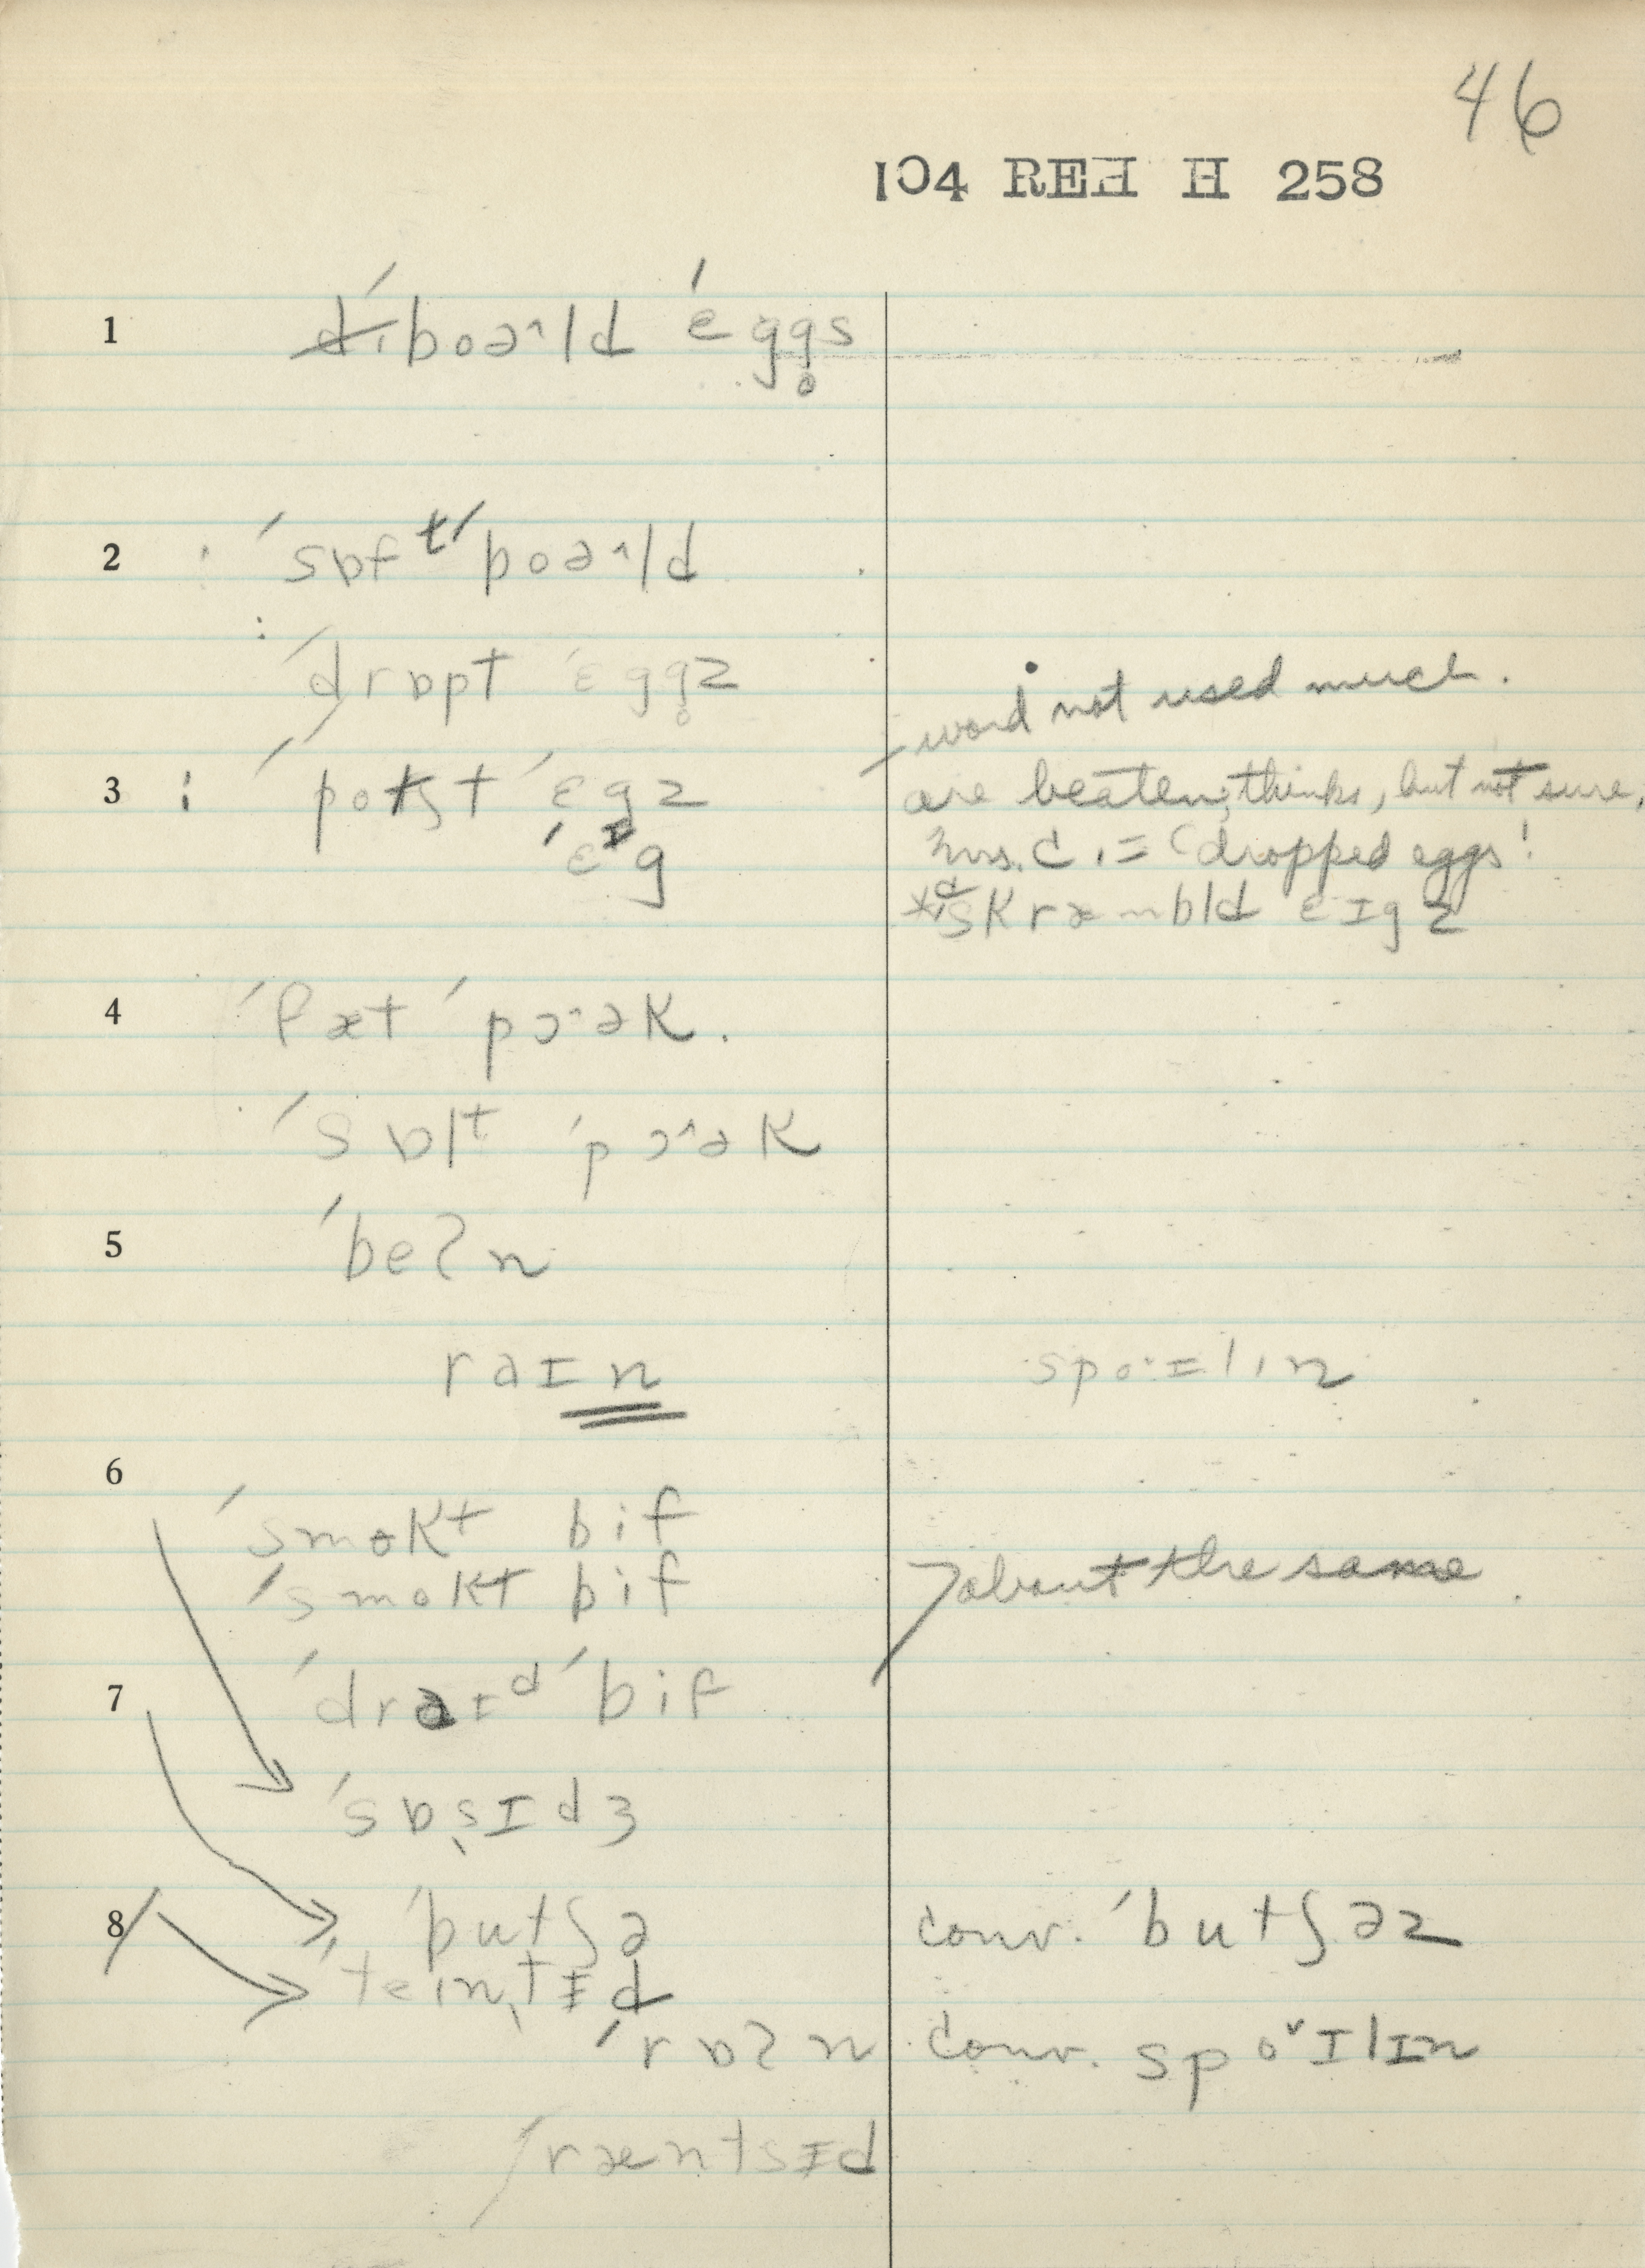 46
104 REH H 258
1 boəˑld ˈeggs
2 ˈsɒft ˈboəˑld
ˈdrɒpt ˈɛgg̥z
word not used much.
3 ˈpotʃt ˈɛgz are beaten, thinks, but not sure.
ˈɛᴵg Mrs. C. = 'dropped eggs'
skræmbld ɛɪgz
4 ˈfæt ˈpɔˑək.
ˈsɒlt ˈpɔˑək
5 ˈbeʔn
raɪn spoˑɪlin
6
ˈsmɵkt bif
ˈsmokt bif about the same
7 ˈdraɪd ˈbif
ˈsɒsɪdʒ
8 ˈbutʃə conv. ˈbutʃəz
ˈteintɪd
ˈrɒʔn conv. spoˑɪlɪn
ˈræntsɪd